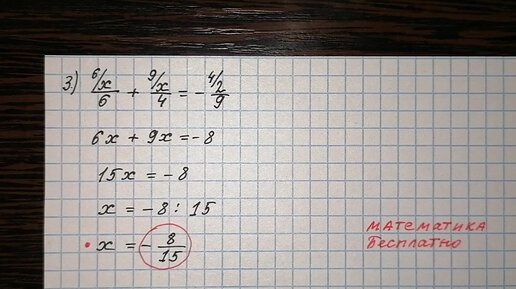 3.) ⁶/x/6 + ⁹/x/4 = - ⁴/2/9
6x + 9x = - 8
15x = - 8
x = - 8 : 15
• x = - 8/15
МАТЕМАТИКА
Бесплатно